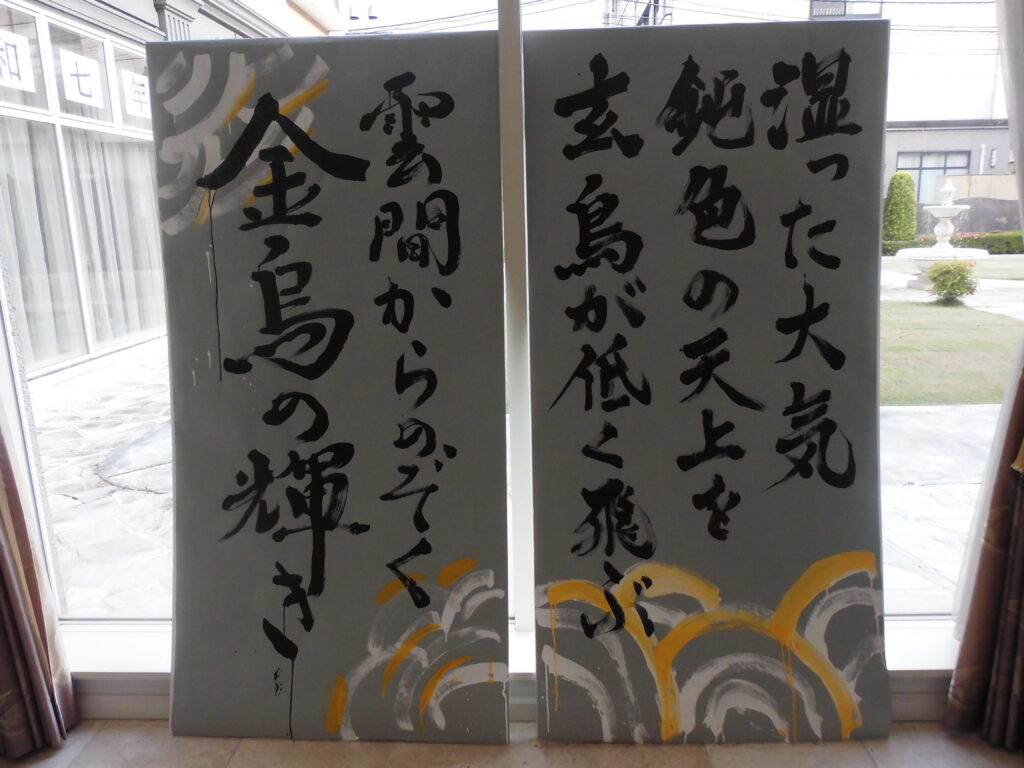 湿った大気
鈍色の天上を
玄鳥が低く飛ぶ
雲間からのぞく
金烏の輝き
和七年